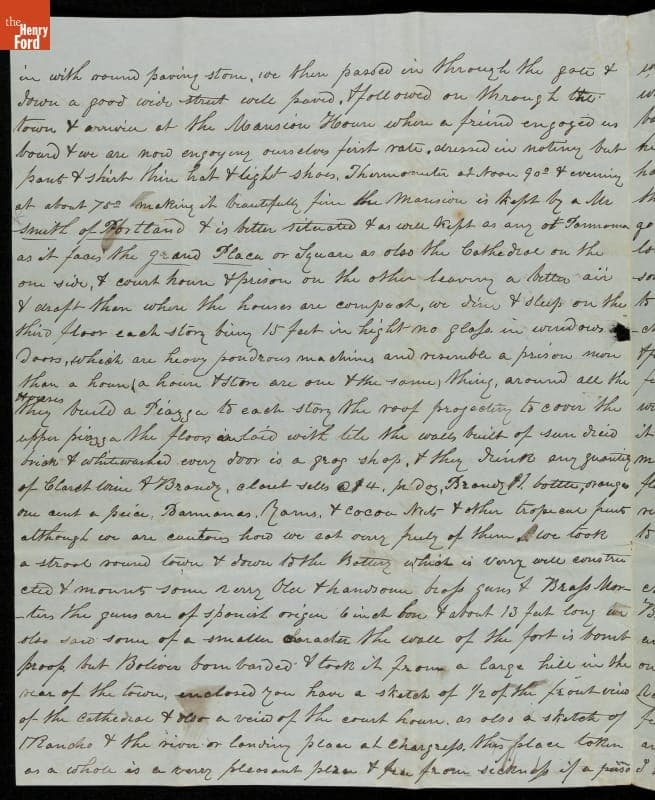 the
Henry
Ford
in with round paving stone, we then passed in through the gate &
down a good wide street well paved, & followed on through the
town & arrived at the Mansion House where a friend engaged us
board & we are now engoying ourselves first rate, dressed in nothing but
pant & shirt thin hat & light shoes, Thermometer at Noon 90° & evening
at about 75° making it beautifully fine the Mansion is kept by a Mr
Smith of Portland & is better situated & as well kept as any at Pannama
as it faces the grand Placa or Square as also the Cathedral on the
one side, & court house & prison on the other leaving a better air
& draft than where the houses are compact, we dine & sleep on the
third floor each story being 15 feet in hight no glass in windows
doors, which are heavy pondrous machines and resemble a prison more
than a house (a house & store are one & the same) thing, around all the
houses
they build a Piazza to each story the roof projecting to cover the
upper piazza the floors inlaid with tile the walls built of sun dried
brick & whitewashed every door is a grog shop, & they drink any quantity
of Claret Wine & Brandy, claret sells @ $4. pr Doz, Brandy $1. bottle, oranges
one cent a peice, Bannanas, Yams, & Cocoa Nuts & other tropical fruit
although we are cautous how we eat very freely of them, we took
a strool round town & down to the Battery which is verry well constru
cted & mounts some very Old & handsome brass guns & Brass Mor-
-ters the guns are of spanish origin 6 inch bore & about 13 feet long we
also saw some of a smaller caracter the wall of the fort is bomb
proof, but Boliver bombarded & took it from a large hill in the
rear of the town, enclosed you have a sketch of 1/2 of the front view
of the Cathedral & also a veiw of the court house, as also a sketch of
1 Rancho & the river or landing place at Chargress, this place taken
as a whole is a verry pleasant place & free from sickness if a pers